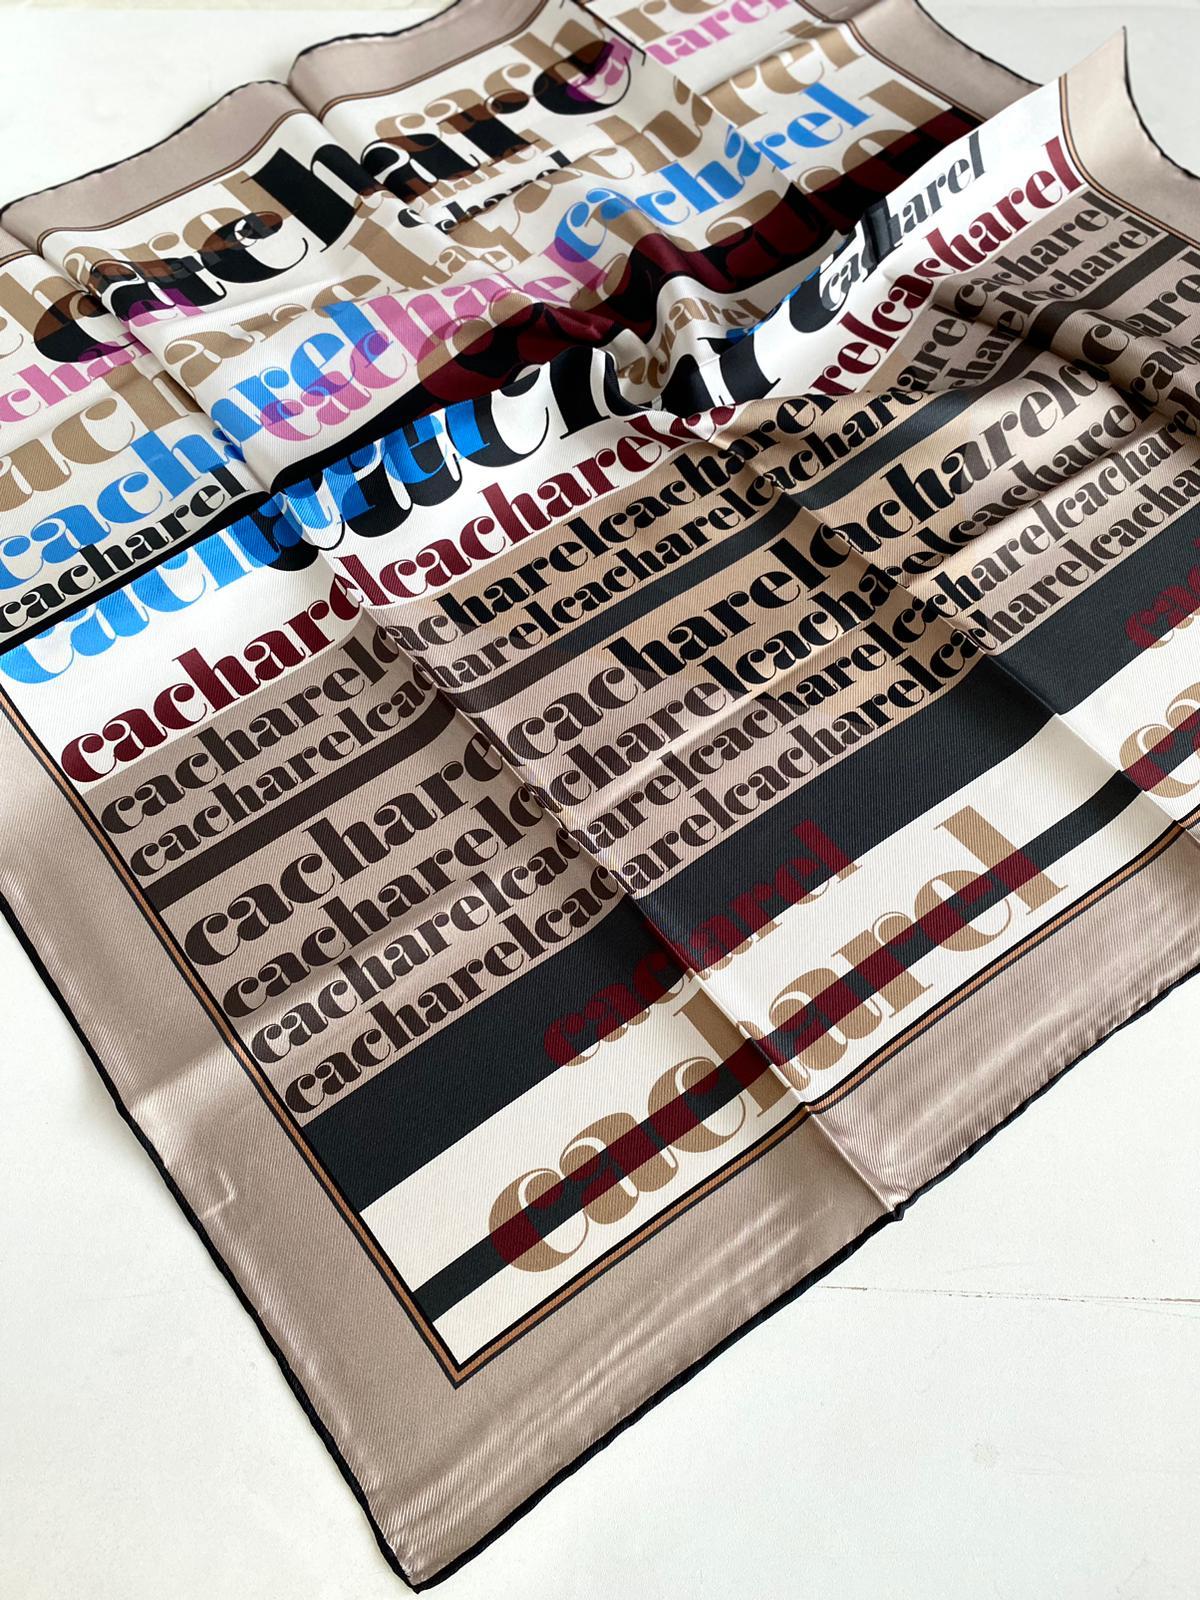 cacharel
cacharel
cacharel
cacharel
cacharel
cacharel
cacharel
cacharel
cacharel
cacharelcacharelcacharel
cacharelcacharelcacharel
cacharelcacharelcacharel
cacharelcacharel
cacharelcacharelcacharel
cacharelcacharelcacharel
cacharelcacharelcacharel
cacharel
cacharel